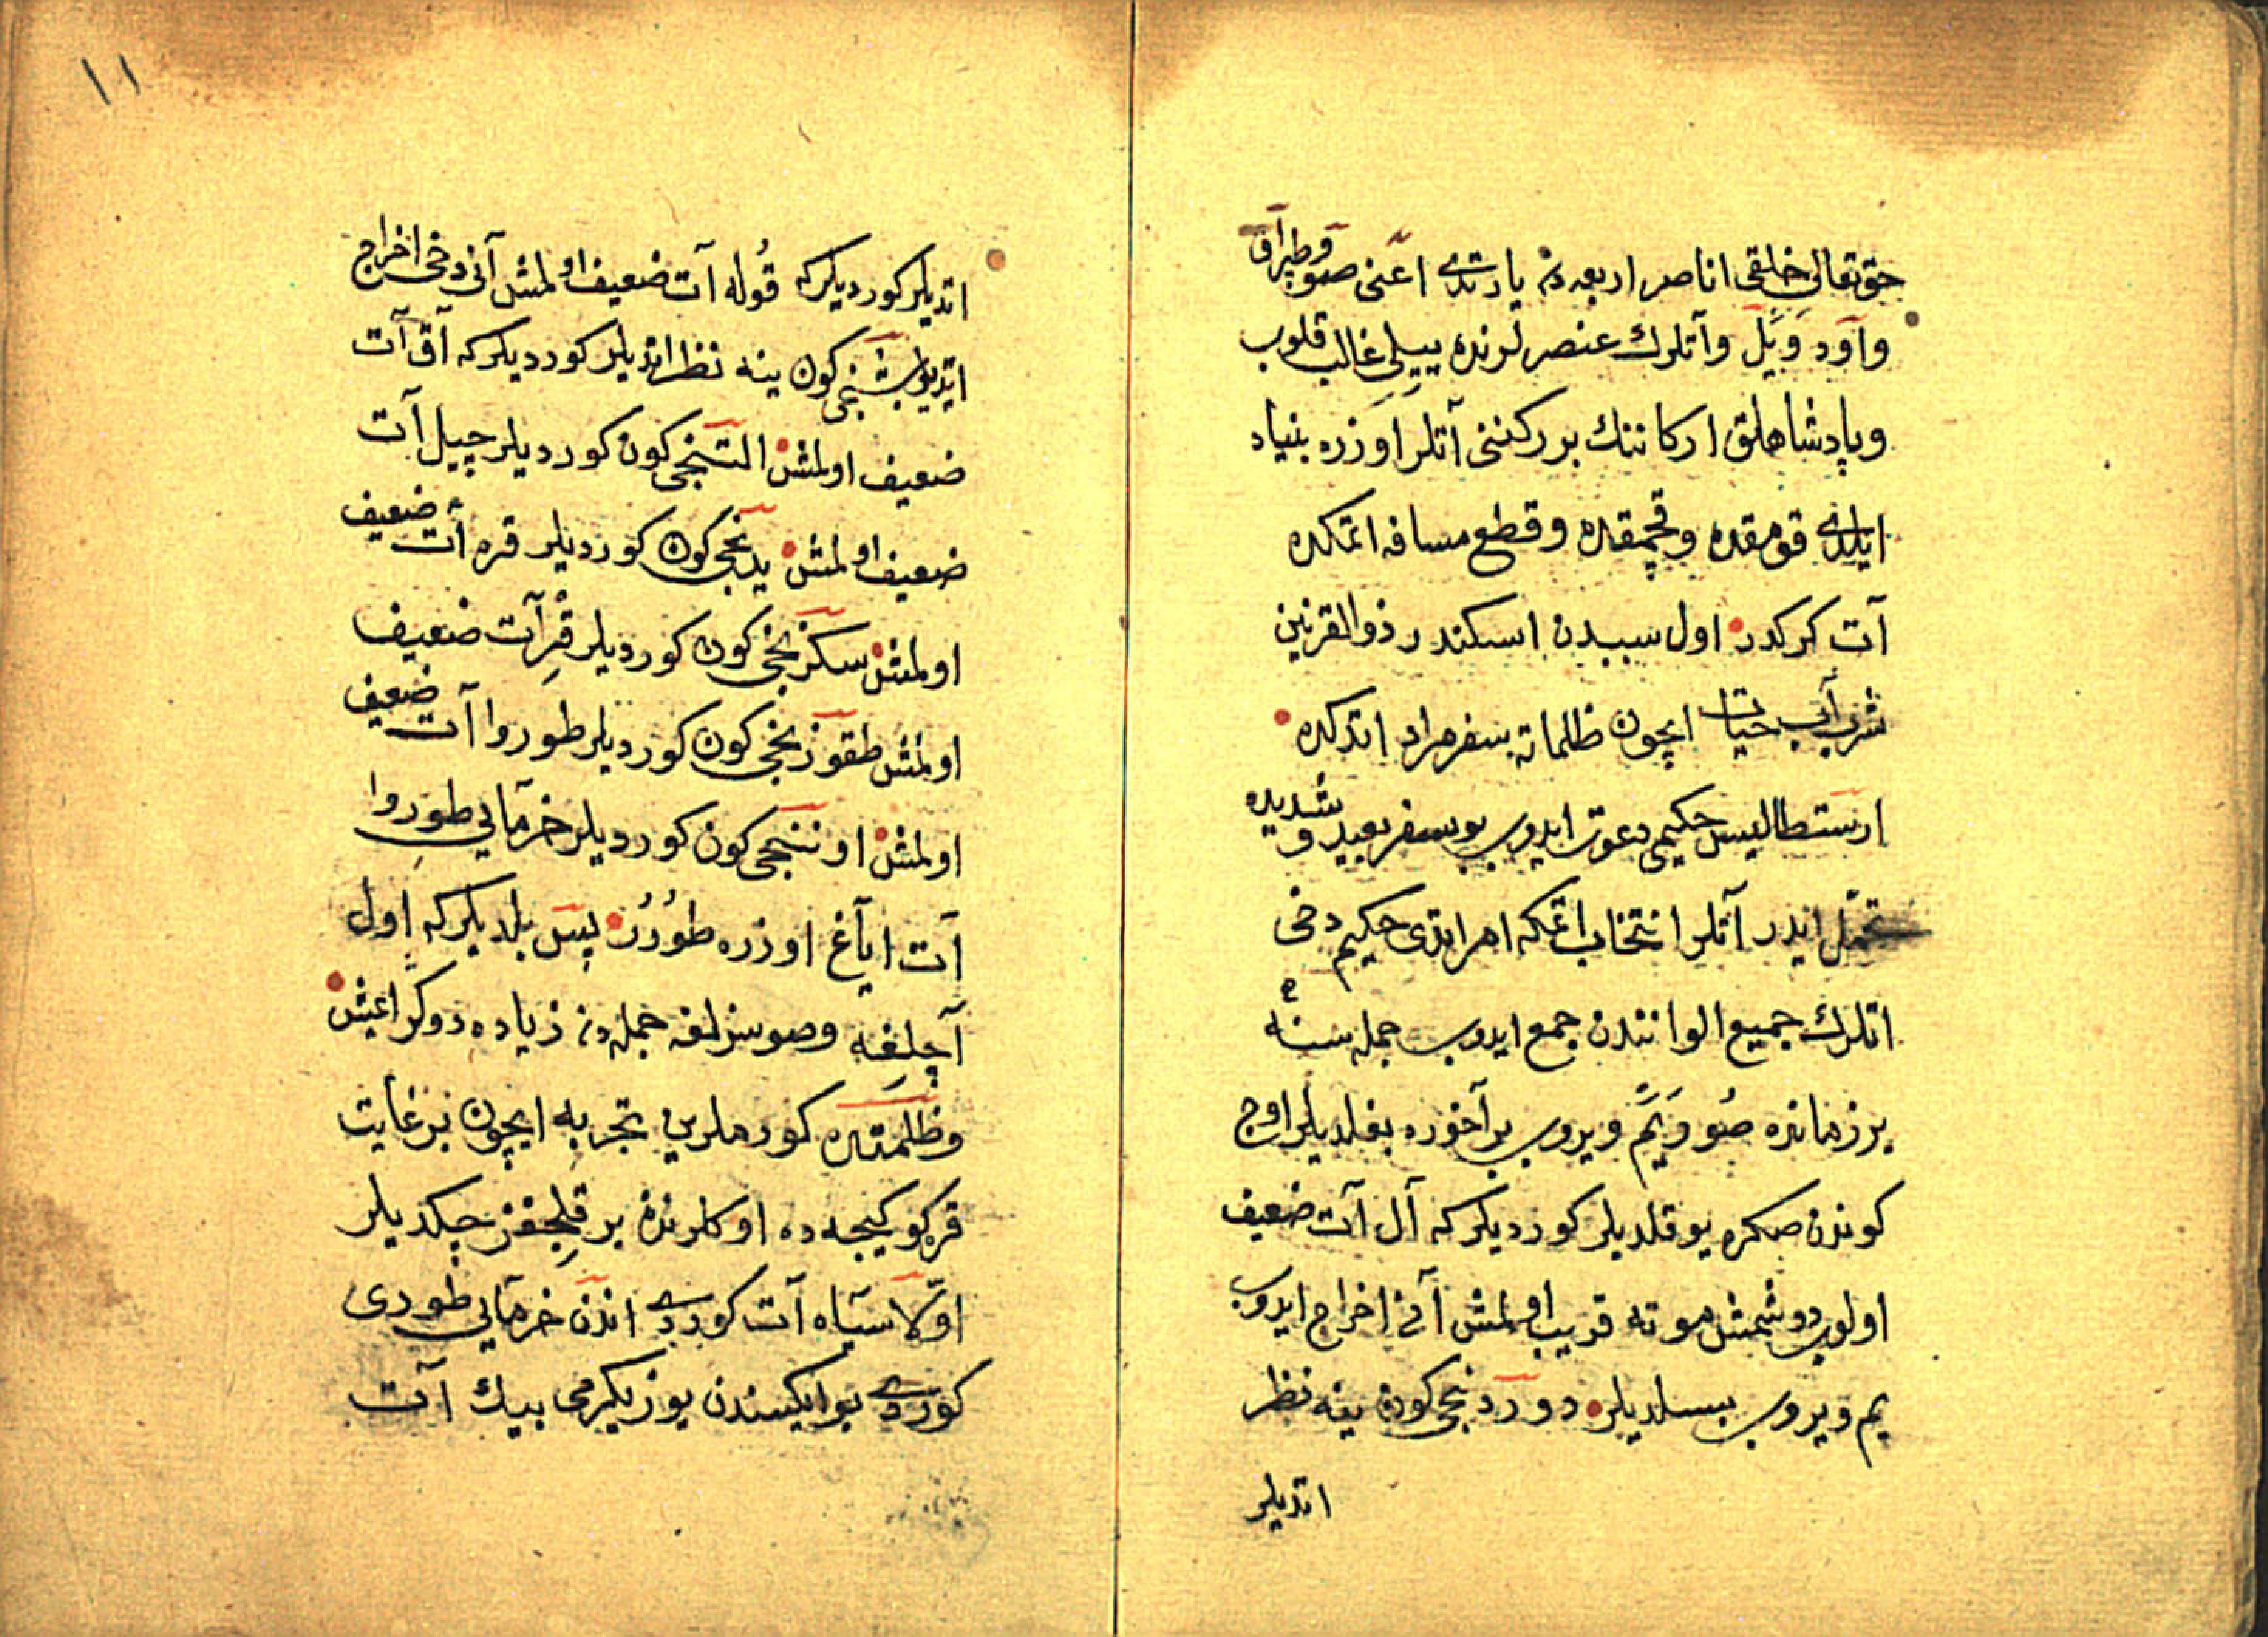 حق تعالی خلقی اناصر اربعه دن یارتدی اعنی صو و طپراق
و اود و ییل و آتلرك عنصرلرنده ییلی غالب قلوب
و پادشاهلق ارکاننك بر رکننی آتلر اوزره بنیاد
ایلدی قومقده و قچمقده و قطع مسافه اتمکده
آت کرکدر اول سببدن اسکندر ذوالقرنین
شرب آب حیات ایچون ظلماته سفر مراد اتدکده
ارستطالیس حکیمی دعوت ایدوب بو سفر بعید و شدیده
تحمل ایدر آتلر انتخاب اتمکه امر اتدی حکیم دخی
اتلرك جمیع الوانندن جمع ایدوب جمله سنه
بر زمانده صو و یم ویروب بر آخورده بغلدیلر اوچ
کوندن صکره یوقلدیلر کوردیلر که آل آت ضعیف
اولوب دوشمش موته قریب اولمش آنی اخراج ایدوب
یم ویروب بسلدیلر دوردنجی کون ینه نظر
اتدیلر
١١
اتدیلر کوردیلر که قوله آت ضعیف اولمش آنی دخی اخراج
ایتدیلر بشنجی کون ینه نظر اتدیلر کوردیلر که آق آت
ضعیف اولمش التنجی کون کوردیلر چپیل آت
ضعیف اولمش یدنجی کون کوردیلر قره آت ضعیف
اولمش سکزنجی کون کوردیلر قر آت ضعیف
اولمش طقوزنجی کون کوردیلر طوروا آت ضعیف
اولمش اوننجی کون کوردیلر خرمایی طوروا
آت ایاغ اوزره طورر پس بلدیلر که اول
آچلغه و صوسزلغه جمله دن زیاده دوکرامیش
و ظلمتده کورملرین تجربه ایچون بر غایت
قرکو کیجه ده اوکلرنده بر قلجغز چکدیلر
اولا سیاه آت کوردی اندن خرمایی طوری
کوردی بو ایکسندن یوز یکرمی بیك آت